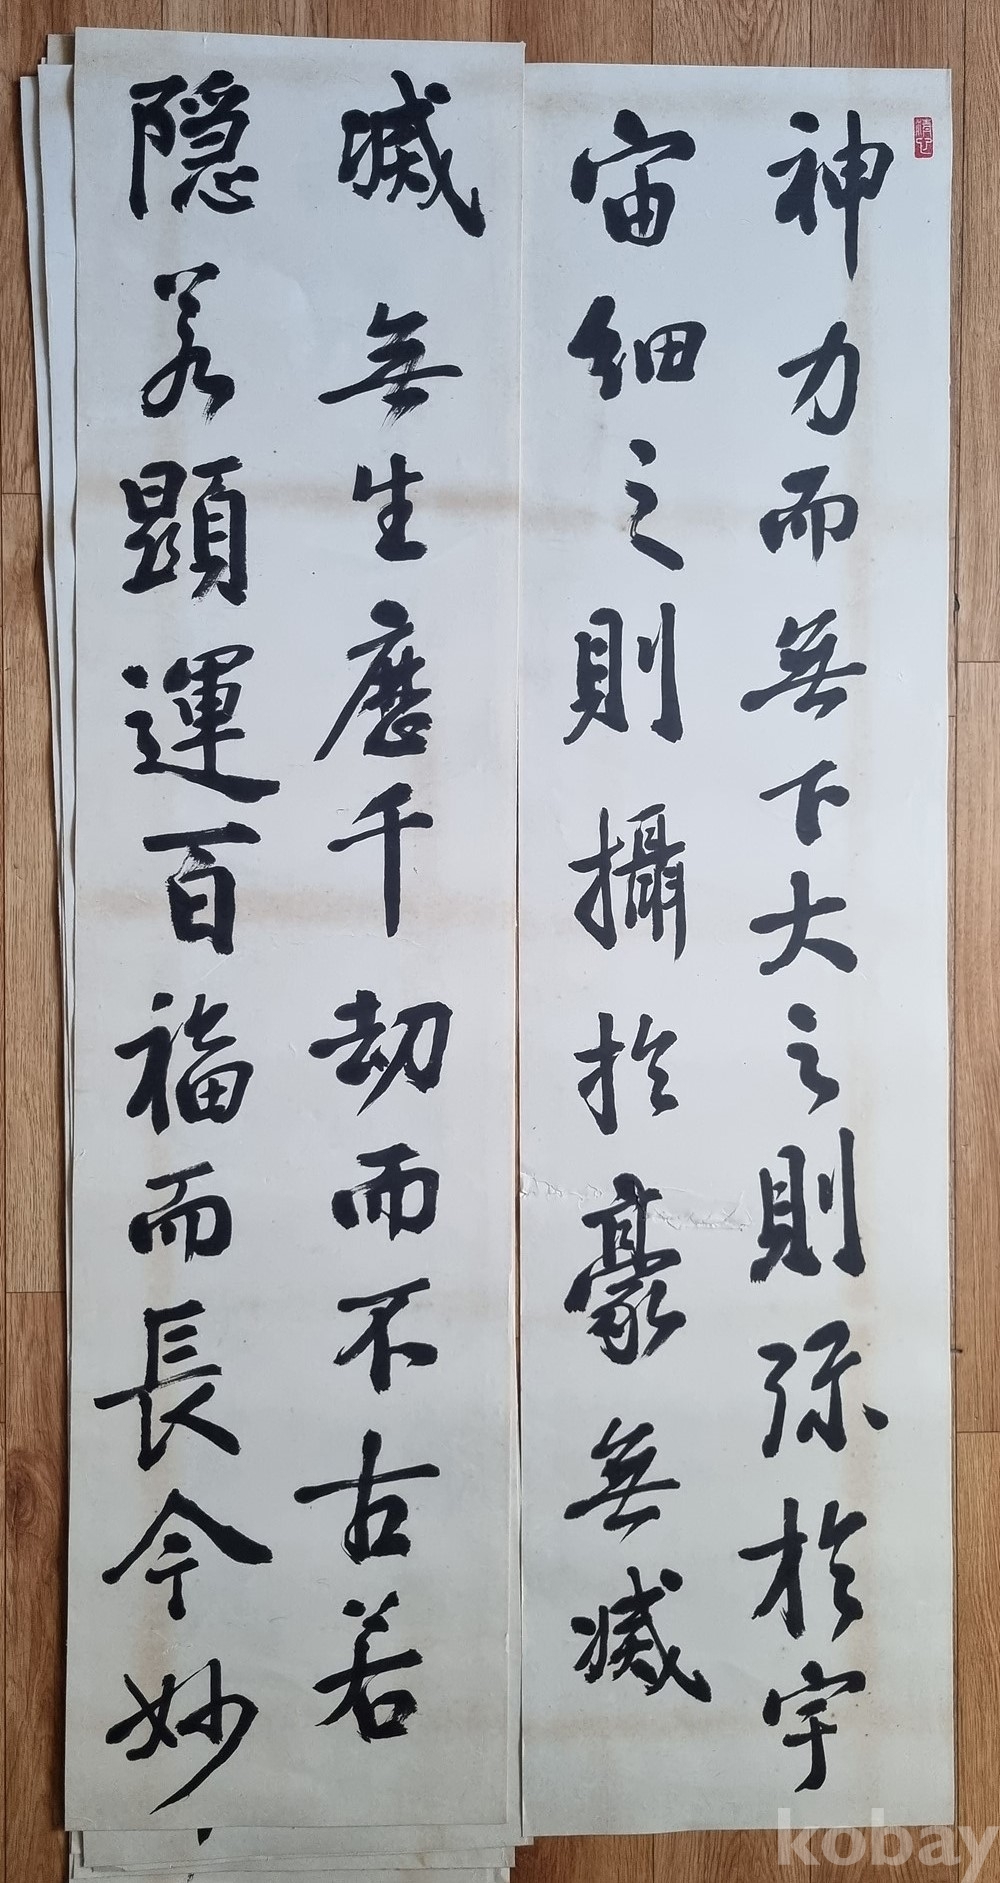 神力而無下大之則弥於宇
宙細之則攝於豪無滅
滅無生歷千劫而不古若
隐若顯運百福而長今妙
kobay